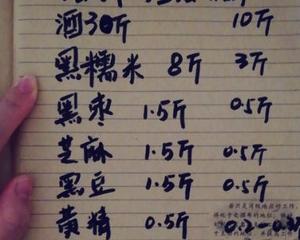 酒30斤 10斤
黑糯米 8斤 3斤
黑枣 1.5斤 0.5斤
芝麻 1.5斤 0.5斤
黑豆 1.5斤 0.5斤
黄精 0.5斤